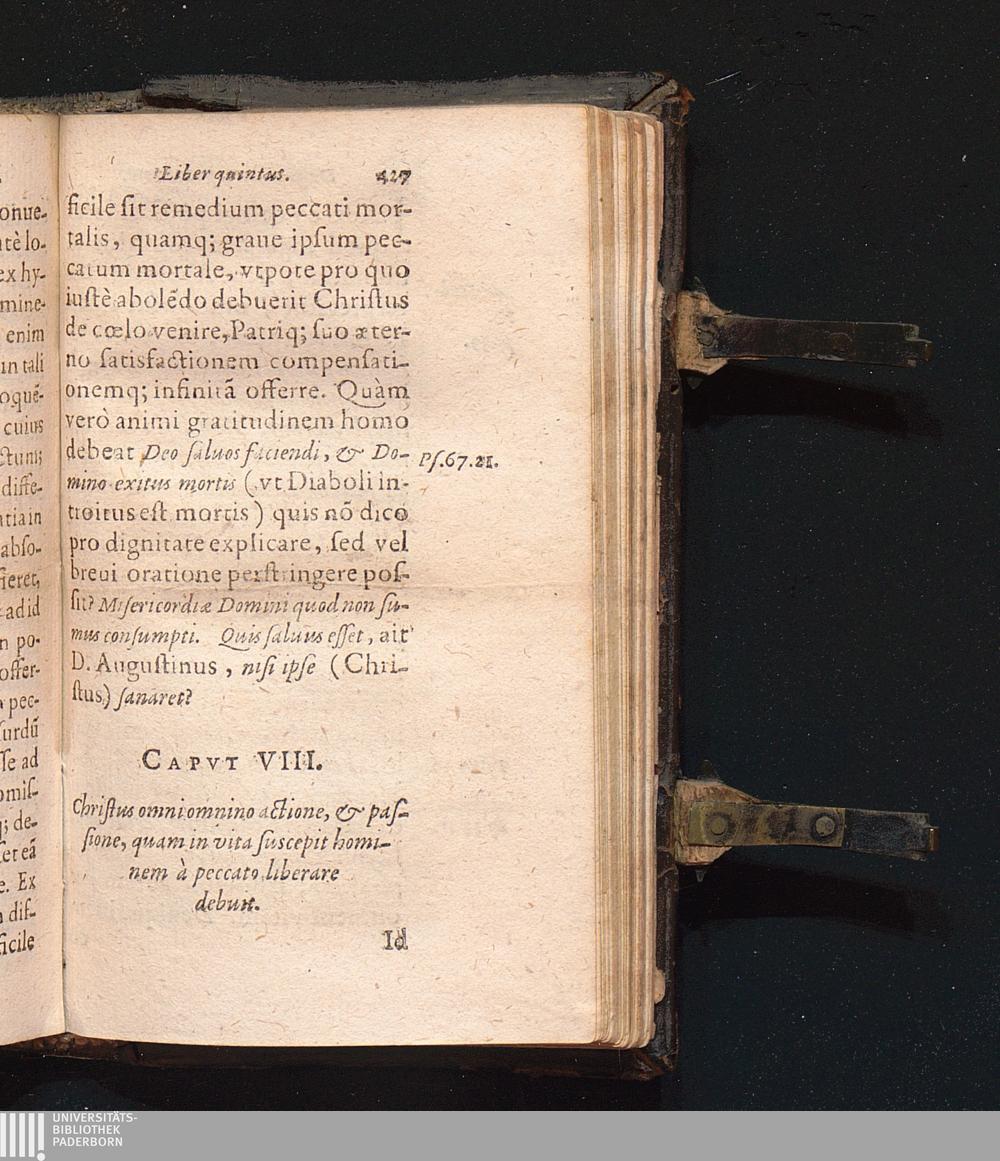 onue-
tè lo-
ex hy-
mine-
enim
in tali
oquẽ-
cuius
diffe-
tia in
abſo-
fieret,
ad id
n po-
offer-
pec-
ſurdũ
ſe ad
omiſ-
q; de-
et eã
e. Ex
diſ-
ficile
Liber quintus. 427
ficile ſit remedium peccati mor-
talis, quamq; graue ipſum pec-
catum mortale, vtpote pro quo
iuſtè abolẽdo debuerit Chriſtus
de cœlo venire, Patriq; ſuo æter-
no ſatisfactionem compenſati-
onemq; infinitã offerre. Quàm
verò animi gratitudinem homo
debeat Deo ſaluos faciendi, & Do-
mino exitus mortis (vt Diaboli in-
troitus eſt mortis) quis nõ dico
pro dignitate explicare, ſed vel
breui oratione perſtringere poſ-
ſit? Miſericordiæ Domini quod non ſu-
mus conſumpti. Quis ſaluus eſſet, ait
D. Auguſtinus, niſi ipſe (Chri-
ſtus) ſanaret?
Pſ.67.21.
CAPVT VIII.
Chriſtus omni omnino actione, & paſ-
ſione, quam in vita ſuscepit homi-
nem à peccato liberare
debuit.
Id
UNIVERSITÄTS-
BIBLIOTHEK
PADERBORN